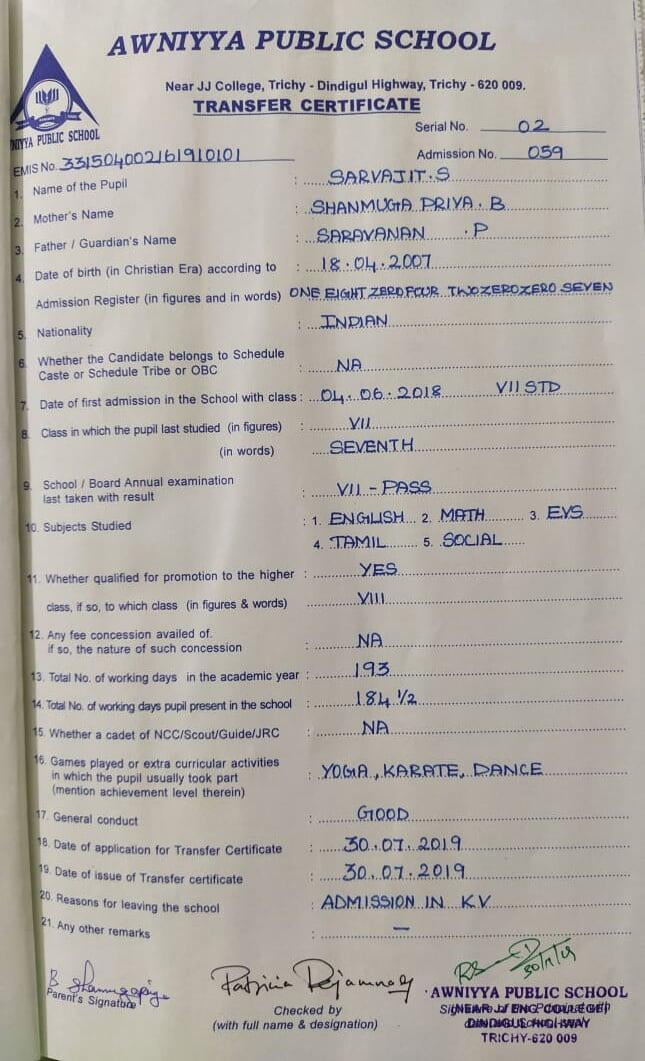 AWNIYYA PUBLIC SCHOOL
Near JJ College, Trichy - Dindigul Highway, Trichy - 620 009.
TRANSFER CERTIFICATE
NIYYA PUBLIC SCHOOL
Serial No. 02
EMIS No. 33150400216191010 1
Admission No. 059
1. Name of the Pupil : SARVAJIT.S
2. Mother's Name : SHANMUGA PRIYA. B
3. Father / Guardian's Name : SARAVANAN .P
4. Date of birth (in Christian Era) according to : 18.04.2007
Admission Register (in figures and in words) ONE EIGHT ZERO FOUR TWO ZERO ZERO SEVEN
5. Nationality : INDIAN
6. Whether the Candidate belongs to Schedule
Caste or Schedule Tribe or OBC : NA
7. Date of first admission in the School with class : 04.06.2018 VII STD
8. Class in which the pupil last studied (in figures) : VII
(in words) SEVENTH
9. School / Board Annual examination
last taken with result : VII - PASS
10. Subjects Studied : 1. ENGLISH 2. MATH 3. EVS
4. TAMIL 5. SOCIAL
11. Whether qualified for promotion to the higher : YES
class, if so, to which class (in figures & words) : VIII
12. Any fee concession availed of.
if so, the nature of such concession : NA
13. Total No. of working days in the academic year : 193
14. Total No. of working days pupil present in the school : 184 1/2
15. Whether a cadet of NCC/Scout/Guide/JRC : NA
16. Games played or extra curricular activities
in which the pupil usually took part : YOGA, KARATE, DANCE
(mention achievement level therein)
17. General conduct : GOOD
18. Date of application for Transfer Certificate : 30.07.2019
19. Date of issue of Transfer certificate : 30.07.2019
20. Reasons for leaving the school : ADMISSION IN KV
21. Any other remarks : —
B Shanmugapriya
Parent's Signature
Patricia
Checked by
(with full name & designation)
30/7/19
AWNIYYA PUBLIC SCHOOL
(NEAR JJ ENG. COLLEGE)
DINDIGUL HIGHWAY
TRICHY-620 009